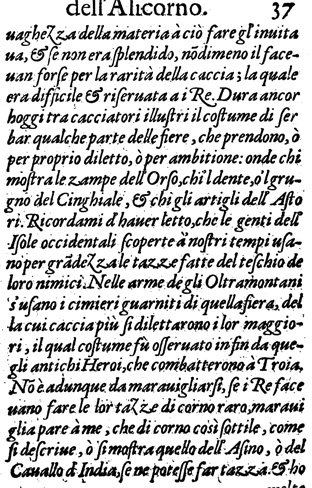 dell'Alicorno. 37
uaghezza della materia à ciò fare gl'inuita
ua, & se non era splendido, nōdimeno il face-
uan forse per la rarità della caccia; la quale
era difficile & riseruata a i Re. Dura ancor
hoggi tra cacciatori illustri il costume di ser
bar qualche parte delle fiere, che prendono, ò
per proprio diletto, ò per ambitione: onde chi
mostra le zampe dell'Orso, chi'l dente, o'l gru-
gno del Cinghiale, & chi gli artigli dell'Asto
ri. Ricordami d'hauer letto, che le genti dell'
Isole occidentali scoperte à nostri tempi usa-
no per grādezza le tazze fatte del teschio de
loro nimici. Nelle arme degli Oltramontani
s'usano i cimieri guarniti di quella fiera, del
la cui caccia più si dilettarono i lor maggio-
ri, il qual costume fù osseruato infin da que-
gli antichi Heroi, che combatterono à Troia.
Nō è adunque da marauigliarsi, se i Re face
uano fare le lor tazze di corno raro, maraui
glia pare à me, che di corno così sottile, come
si descriue, ò si mostra quello dell'Asino, ò del
Cauallo d'India, se ne potesse far tazza. & ho